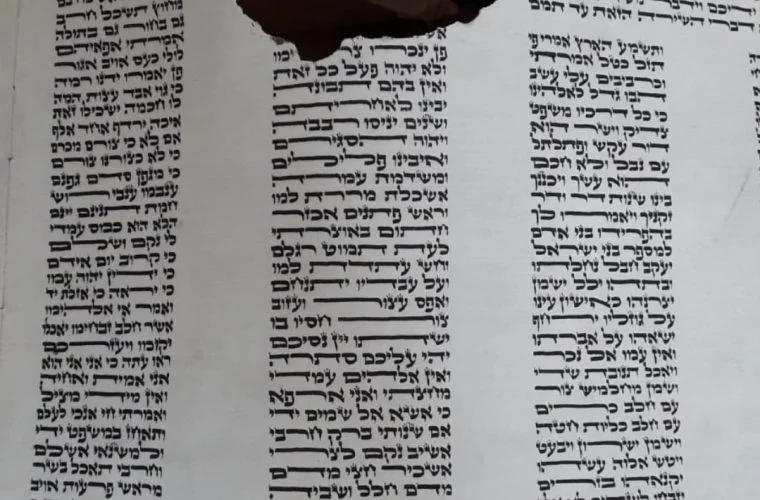 דברי השירה הזאת עד תמם
ותשמע הארץ אמרי פי
תזל כטל אמרתי
וכרביבים עלי עשב
הבו גדל לאלהינו
כי כל דרכיו משפט
צדיק וישר הוא
דור עקש ופתלתל
עם נבל ולא חכם
הוא עשך ויכננך
בינו שנות דר ודר
זקניך ויאמרו לך
בהפרידו בני אדם
למספר בני ישראל
יעקב חבל נחלתו
ובתהו ילל ישמן
יצרנהו כאישון עינו
על גוזליו ירחף
ישאהו על אברתו
ואין עמו אל נכר
ויאכל תנובת שדי
ושמן מחלמיש צור
עם חלב כרים
עם חלב כליות חטה
וישמן ישרון ויבעט
ויטש אלוה עשהו
יקנאהו בזרים
פן ינכרו צרימו
ולא יהוה פעל כל זאת
ואין בהם תבונה
יבינו לאחריתם
ושנים יניסו רבבה
ויהוה הסגירם
ואיבינו פלילים
ומשדמת עמרה
אשכלת מררת למו
וראש פתנים אכזר
חתום באוצרתי
לעת תמוט רגלם
וחש עתדת למו
ועל עבדיו יתנחם
ואפס עצור ועזוב
צור חסיו בו
ישתו יין נסיכם
יהי עליכם סתרה
ואין אלהים עמדי
מחצתי ואני ארפא
כי אשא אל שמים ידי
אם שנותי ברק חרבי
אשיב נקם לצרי
אשכיר חצי מדם
מדם חלל ושביה
מחוץ תשכל חרב
גם בחור גם בתולה
אמרתי אפאיהם
לולי כעס אויב אגור
פן יאמרו ידינו רמה
כי גוי אבד עצות המה
לו חכמו ישכילו זאת
איכה ירדף אחד אלף
אם לא כי צורם מכרם
כי לא כצורנו צורם
כי מגפן סדם גפנם
ענבמו ענבי רוש
חמת תנינם יינם
הלא הוא כמס עמדי
לי נקם ושלם
כי קרוב יום אידם
כי ידין יהוה עמו
כי יראה כי אזלת יד
ואמר אי אלהימו
אשר חלב זבחימו יאכלו
יקומו ויעזרכם
ראו עתה כי אני אני הוא
אני אמית ואחיה
ואין מידי מציל
ואמרתי חי אנכי לעלם
ותאחז במשפט ידי
ולמשנאי אשלם
וחרבי תאכל בשר
מראש פרעות אויב